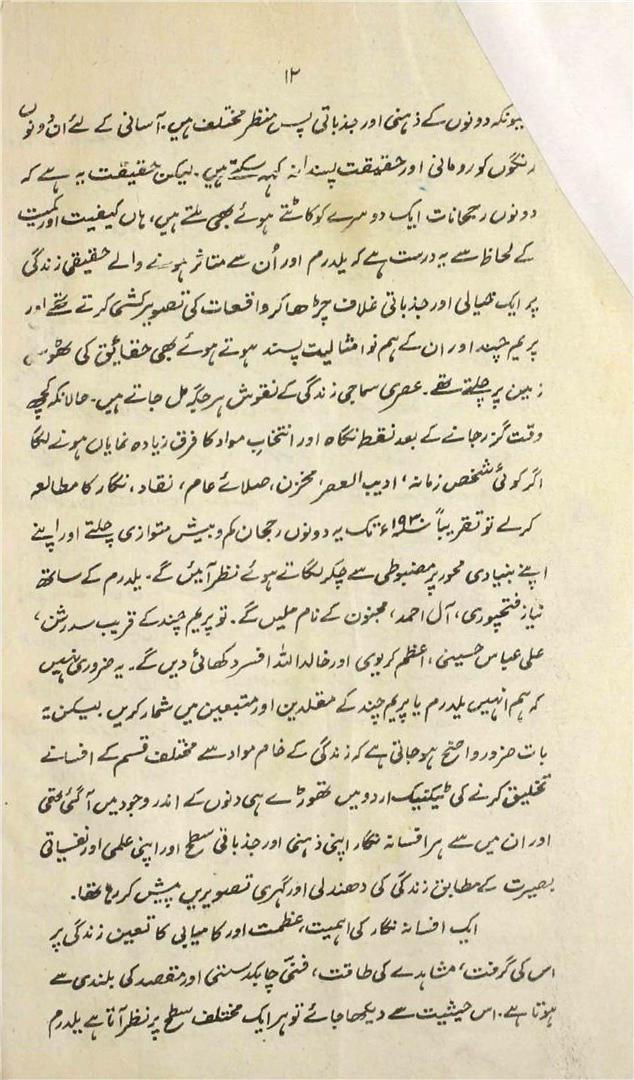 ۱۲
کیونکہ دونوں کے ذہنی اور جذباتی پس منظر مختلف ہیں۔ آسانی کے لئے ان دونوں
رنگوں کو رومانی اور حقیقت پسندانہ کہہ سکتے ہیں۔ لیکن حقیقت یہ ہے کہ
دونوں رجحانات ایک دوسرے کو کاٹتے ہوئے بھی ملتے ہیں، ہاں کیفیت اور کمیت
کے لحاظ سے یہ درست ہے کہ یلدرم اور اُن سے متاثر ہونے والے حقیقی زندگی
پر ایک خیالی اور جذباتی غلاف چڑھا کر واقعات کی تصویر کشی کرتے تھے اور
پریم چند اور ان کے ہم نوا مثالیت پسند ہوتے ہوئے بھی حقائق کی ٹھوس
زمین پر چلتے تھے۔ عصری سماجی زندگی کے نقوش ہر جگہ مل جاتے ہیں۔ حالانکہ کچھ
وقت گزر جانے کے بعد نقطۂ نگاہ اور انتخابِ مواد کا فرق زیادہ نمایاں ہونے لگا
اگر کوئی شخص زمانہ، ادیب العصر، مخزن، صلائے عام، نقاد، نگار کا مطالعہ
کرے تو تقریباً ۱۹۳۰ء تک یہ دونوں رجحان کم و بیش متوازی چلتے اور اپنے
اپنے بنیادی محور پر مضبوطی سے چکر لگاتے ہوئے نظر آئیں گے۔ یلدرم کے ساتھ
نیاز فتحپوری، آل احمد، مجنون کے نام ملیں گے۔ تو پریم چند کے قریب سدرشن،
علی عباس حسینی، اعظم کریوی اور خالد اللہ افسر دکھائی دیں گے۔ یہ ضروری نہیں
کہ ہم انہیں یلدرم یا پریم چند کے مقلدین اور متبعین میں شمار کریں لیکن یہ
بات ضرور واضح ہو جاتی ہے کہ زندگی کے خام مواد سے مختلف قسم کے افسانے
تخلیق کرنے کی ٹیکنیک اردو میں تھوڑے ہی دنوں کے اندر وجود میں آ گئی تھی
اور ان میں سے ہر افسانہ نگار اپنی ذہنی اور جذباتی سطح اور اپنی علمی اور نفسیاتی
بصیرت کے مطابق زندگی کی دھندلی اور گہری تصویریں پیش کر رہا تھا۔
ایک افسانہ نگار کی اہمیت، عظمت اور کامیابی کا تعین زندگی پر
اس کی گرفت، مشاہدے کی طاقت، فنّی چابکدستی اور مقصد کی بلندی سے
ہوتا ہے۔ اس حیثیت سے دیکھا جائے تو ہر ایک مختلف سطح پر نظر آتا ہے یلدرم